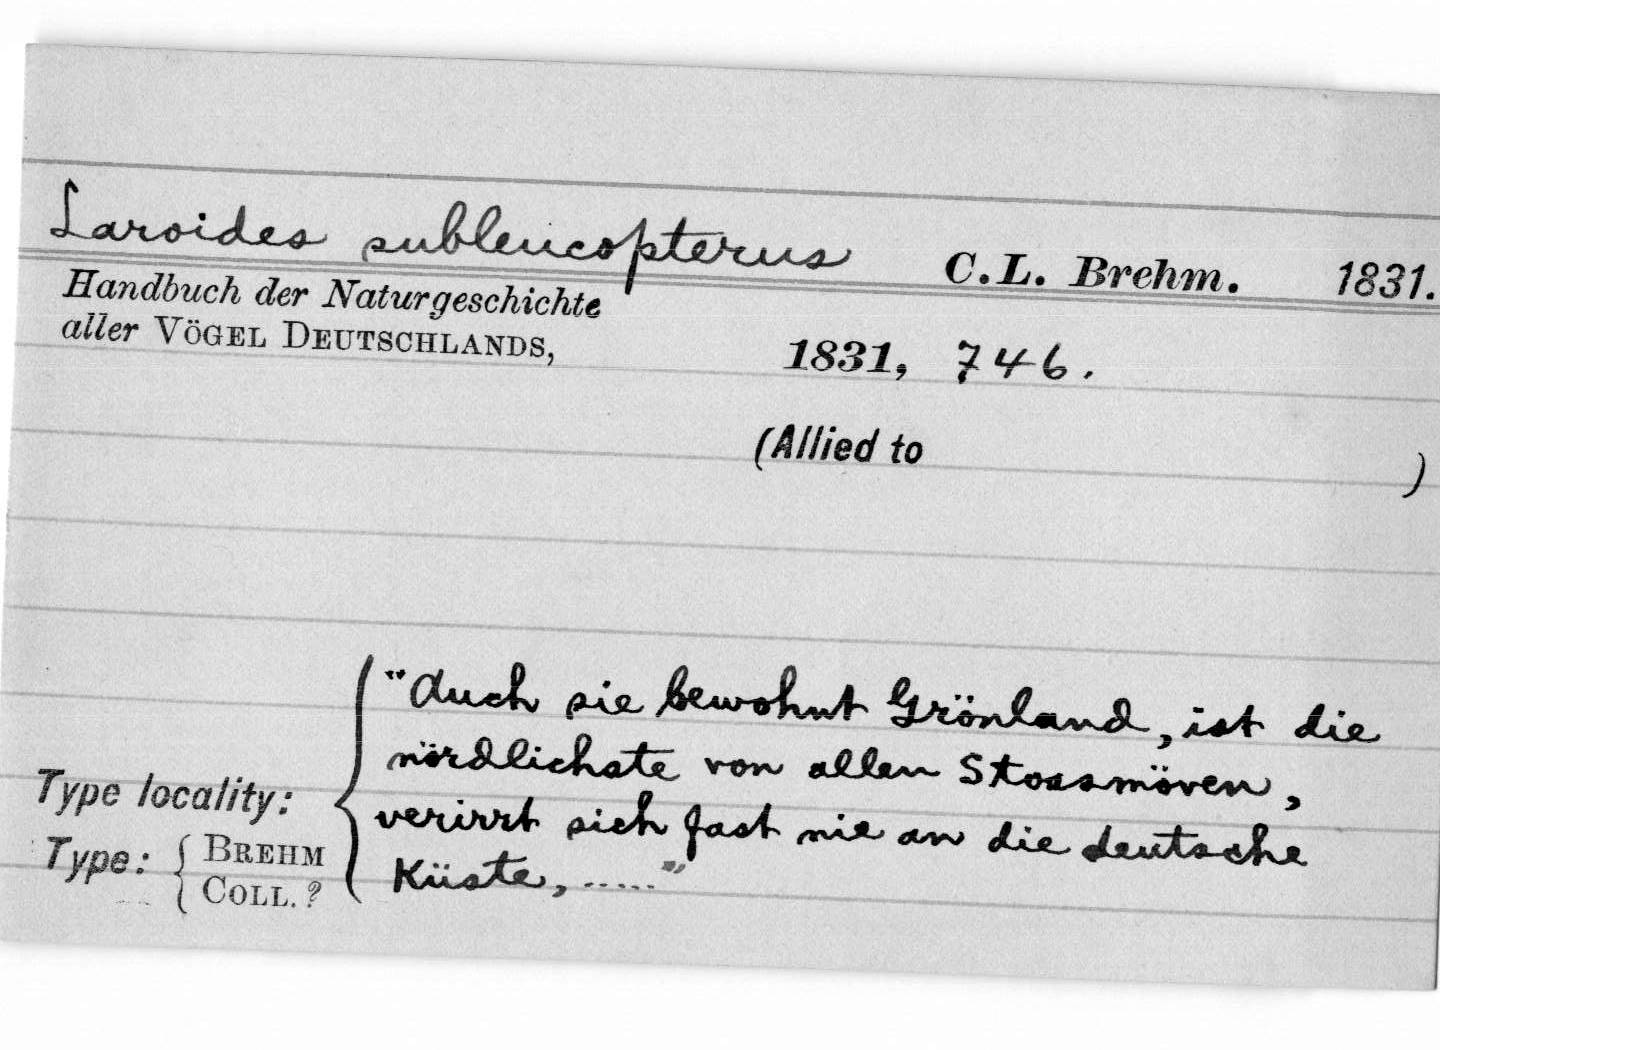 Laroides subleucopterus C.L. Brehm. 1831.
Handbuch der Naturgeschichte
aller VÖGEL DEUTSCHLANDS, 1831, 746.
(Allied to )
"Auch sie bewohnt Grönland, ist die
nördlichste von allen Stossmöven,
Type locality: verirrt sich fast nie an die deutsche
Type: BREHM COLL. ? Küste, ....."